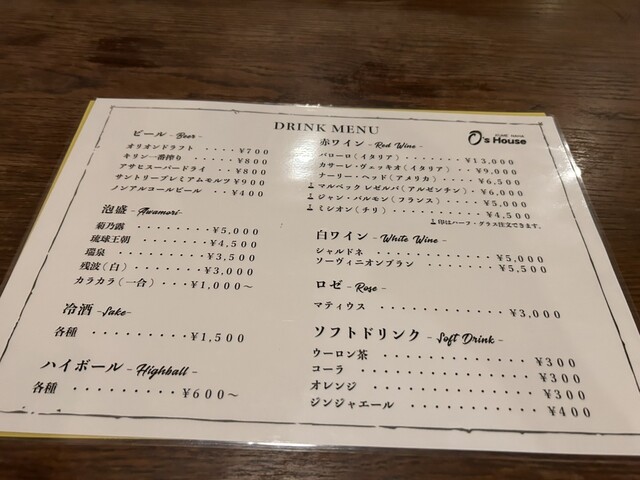 DRINK MENU
O's House
ビール -Beer-
オリオンドラフト ････¥700
キリン一番搾り ･････¥800
アサヒスーパードライ ･･¥800
サントリープレミアムモルツ¥900
ノンアルコールビール ･･¥400
泡盛 -Awamori-
菊乃露 ････････¥5,000
琉球王朝 ･･･････¥4,500
瑞泉 ････････¥3,500
残波(白) ･･････¥3,000
カラカラ(一合) ･･･¥1,000～
冷酒 -Sake-
各種 ････････¥1,500
ハイボール -Highball-
各種 ････････¥600～
赤ワイン -Red Wine-
バローロ(イタリア) ･･････¥13,000
カサーレ・ヴェッキオ(イタリア) ･･¥9,000
ナーリー・ヘッド(アメリカ) ････¥6,500
マルベック レゼルバ(アルゼンチン)･¥6,000
ジャン・バルモン(フランス) ････¥5,000
ミシオン(チリ) ････････¥4,500
印はハーフ・グラス注文できます。
白ワイン -White Wine-
シャルドネ ･･････････¥5,000
ソーヴィニオンブラン ･･････¥5,500
ロゼ -Rose-
マティウス ･･････････¥3,000
ソフトドリンク -Soft Drink-
ウーロン茶 ･･････････¥300
コーラ ････････････¥300
オレンジ ･･･････････¥300
ジンジャエール ････････¥400